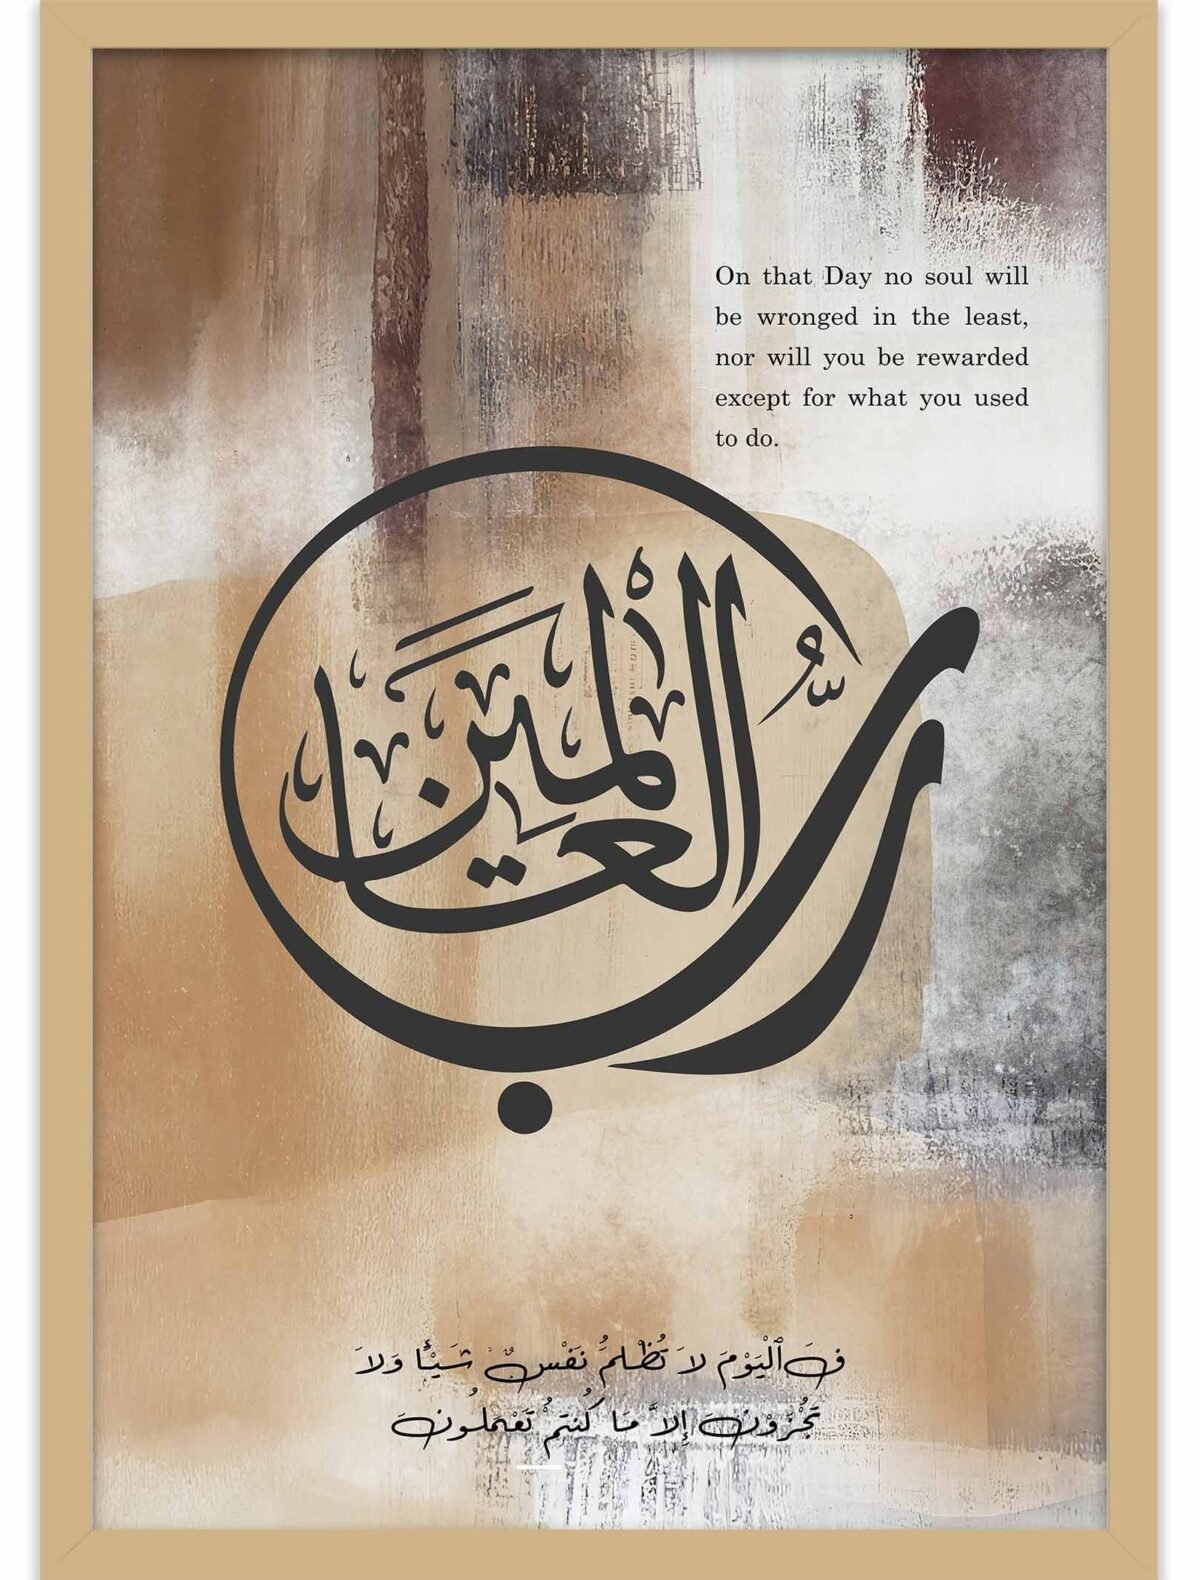 On that Day no soul will
be wronged in the least,
nor will you be rewarded
except for what you used
to do.
رَبُّ الْعَالَمِينَ
فَٱلْيَوْمَ لَا تُظْلَمُ نَفْسٌ شَيْـًٔا وَلَا
تُجْزَوْنَ إِلَّا مَا كُنتُمْ تَعْمَلُونَ